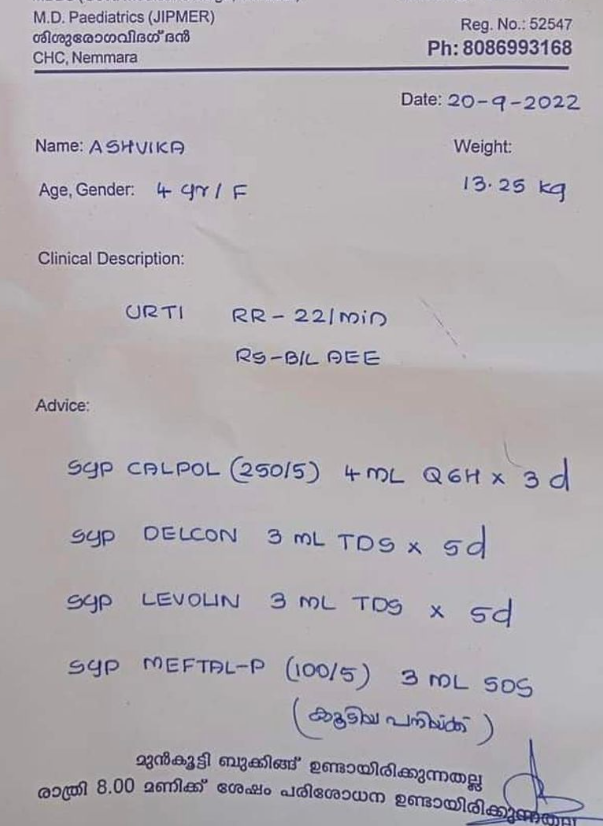 M.D. Paediatrics (JIPMER)
ശിശുരോഗവിദഗ്ദൻ
CHC, Nemmara
Reg. No.: 52547
Ph: 8086993168
Date: 20-9-2022
Name: ASHVIKA
Weight:
Age, Gender: 4 yr / F
13.25 kg
Clinical Description:
URTI RR - 22/min
RS - B/L AEE
Advice:
Syp CALPOL (250/5) 4 mL Q6H x 3d
Syp DELCON 3 mL TDS x 5d
Syp LEVOLIN 3 mL TDS x 5d
Syp MEFTAL-P (100/5) 3 mL SOS
(കൂടിയ പനിയ്ക്ക്)
മുൻകൂട്ടി ബുക്കിങ്ങ് ഉണ്ടായിരിക്കുന്നതല്ല
രാത്രി 8.00 മണിക്ക് ശേഷം പരിശോധന ഉണ്ടായിരിക്കുന്നതല്ല